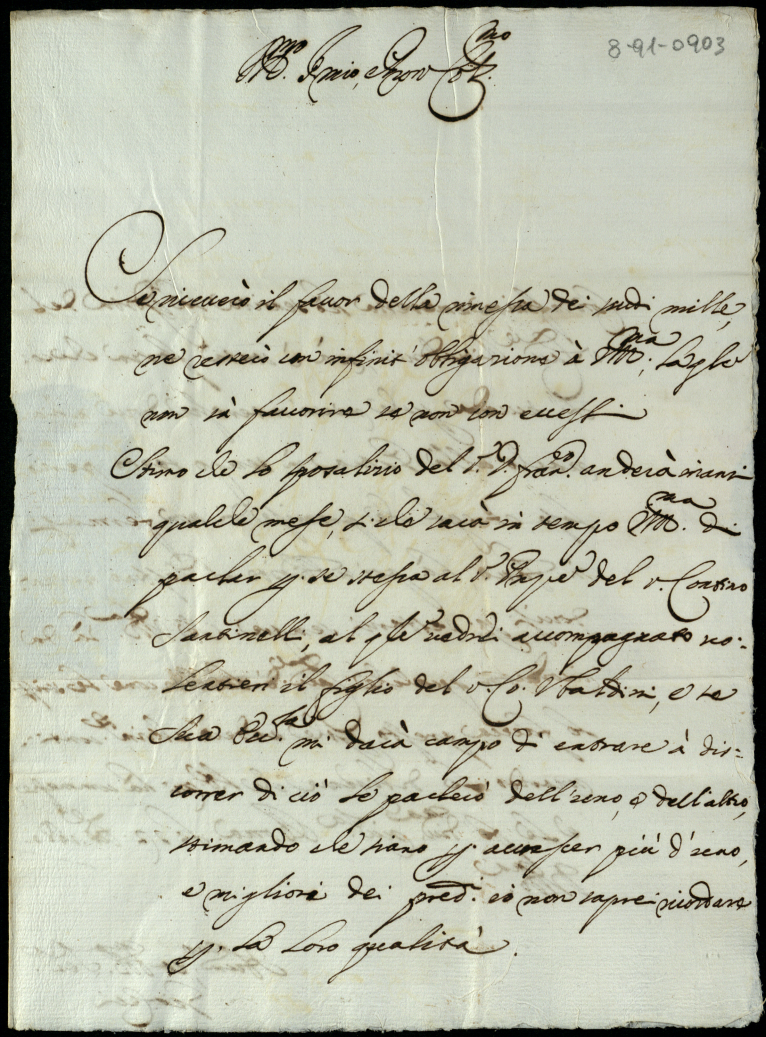 8-91-0903
Ill.mo Sig.r mio, e Pron Col.mo
Se riceverò il favor della rimessa dei scudi mille,
ne resterò con infinit' obligazione à V.S. Ill.ma, la qle
non sà favorire se non con eccessi
Stimo che lo sposalizio del S.r D. Fran.co anderà inanzi
qualche mese, si che sarà in tempo V.S. Ill.ma di
parlar p. se stessa al S.r Pnpe del s. Contino
Santinelli, al qle vedrei accompagnato vo-
lentieri il figlio del s. Co. Ubaldini, e se
Sua Ecc.za mi darà campo di entrare à dis-
correr di ciò le parlerò dell'uno, e dell'altro,
stimando che siano p. accrescer più d'uno,
e migliori dei pred.i io non saprei ricordare
p. la loro qualità.